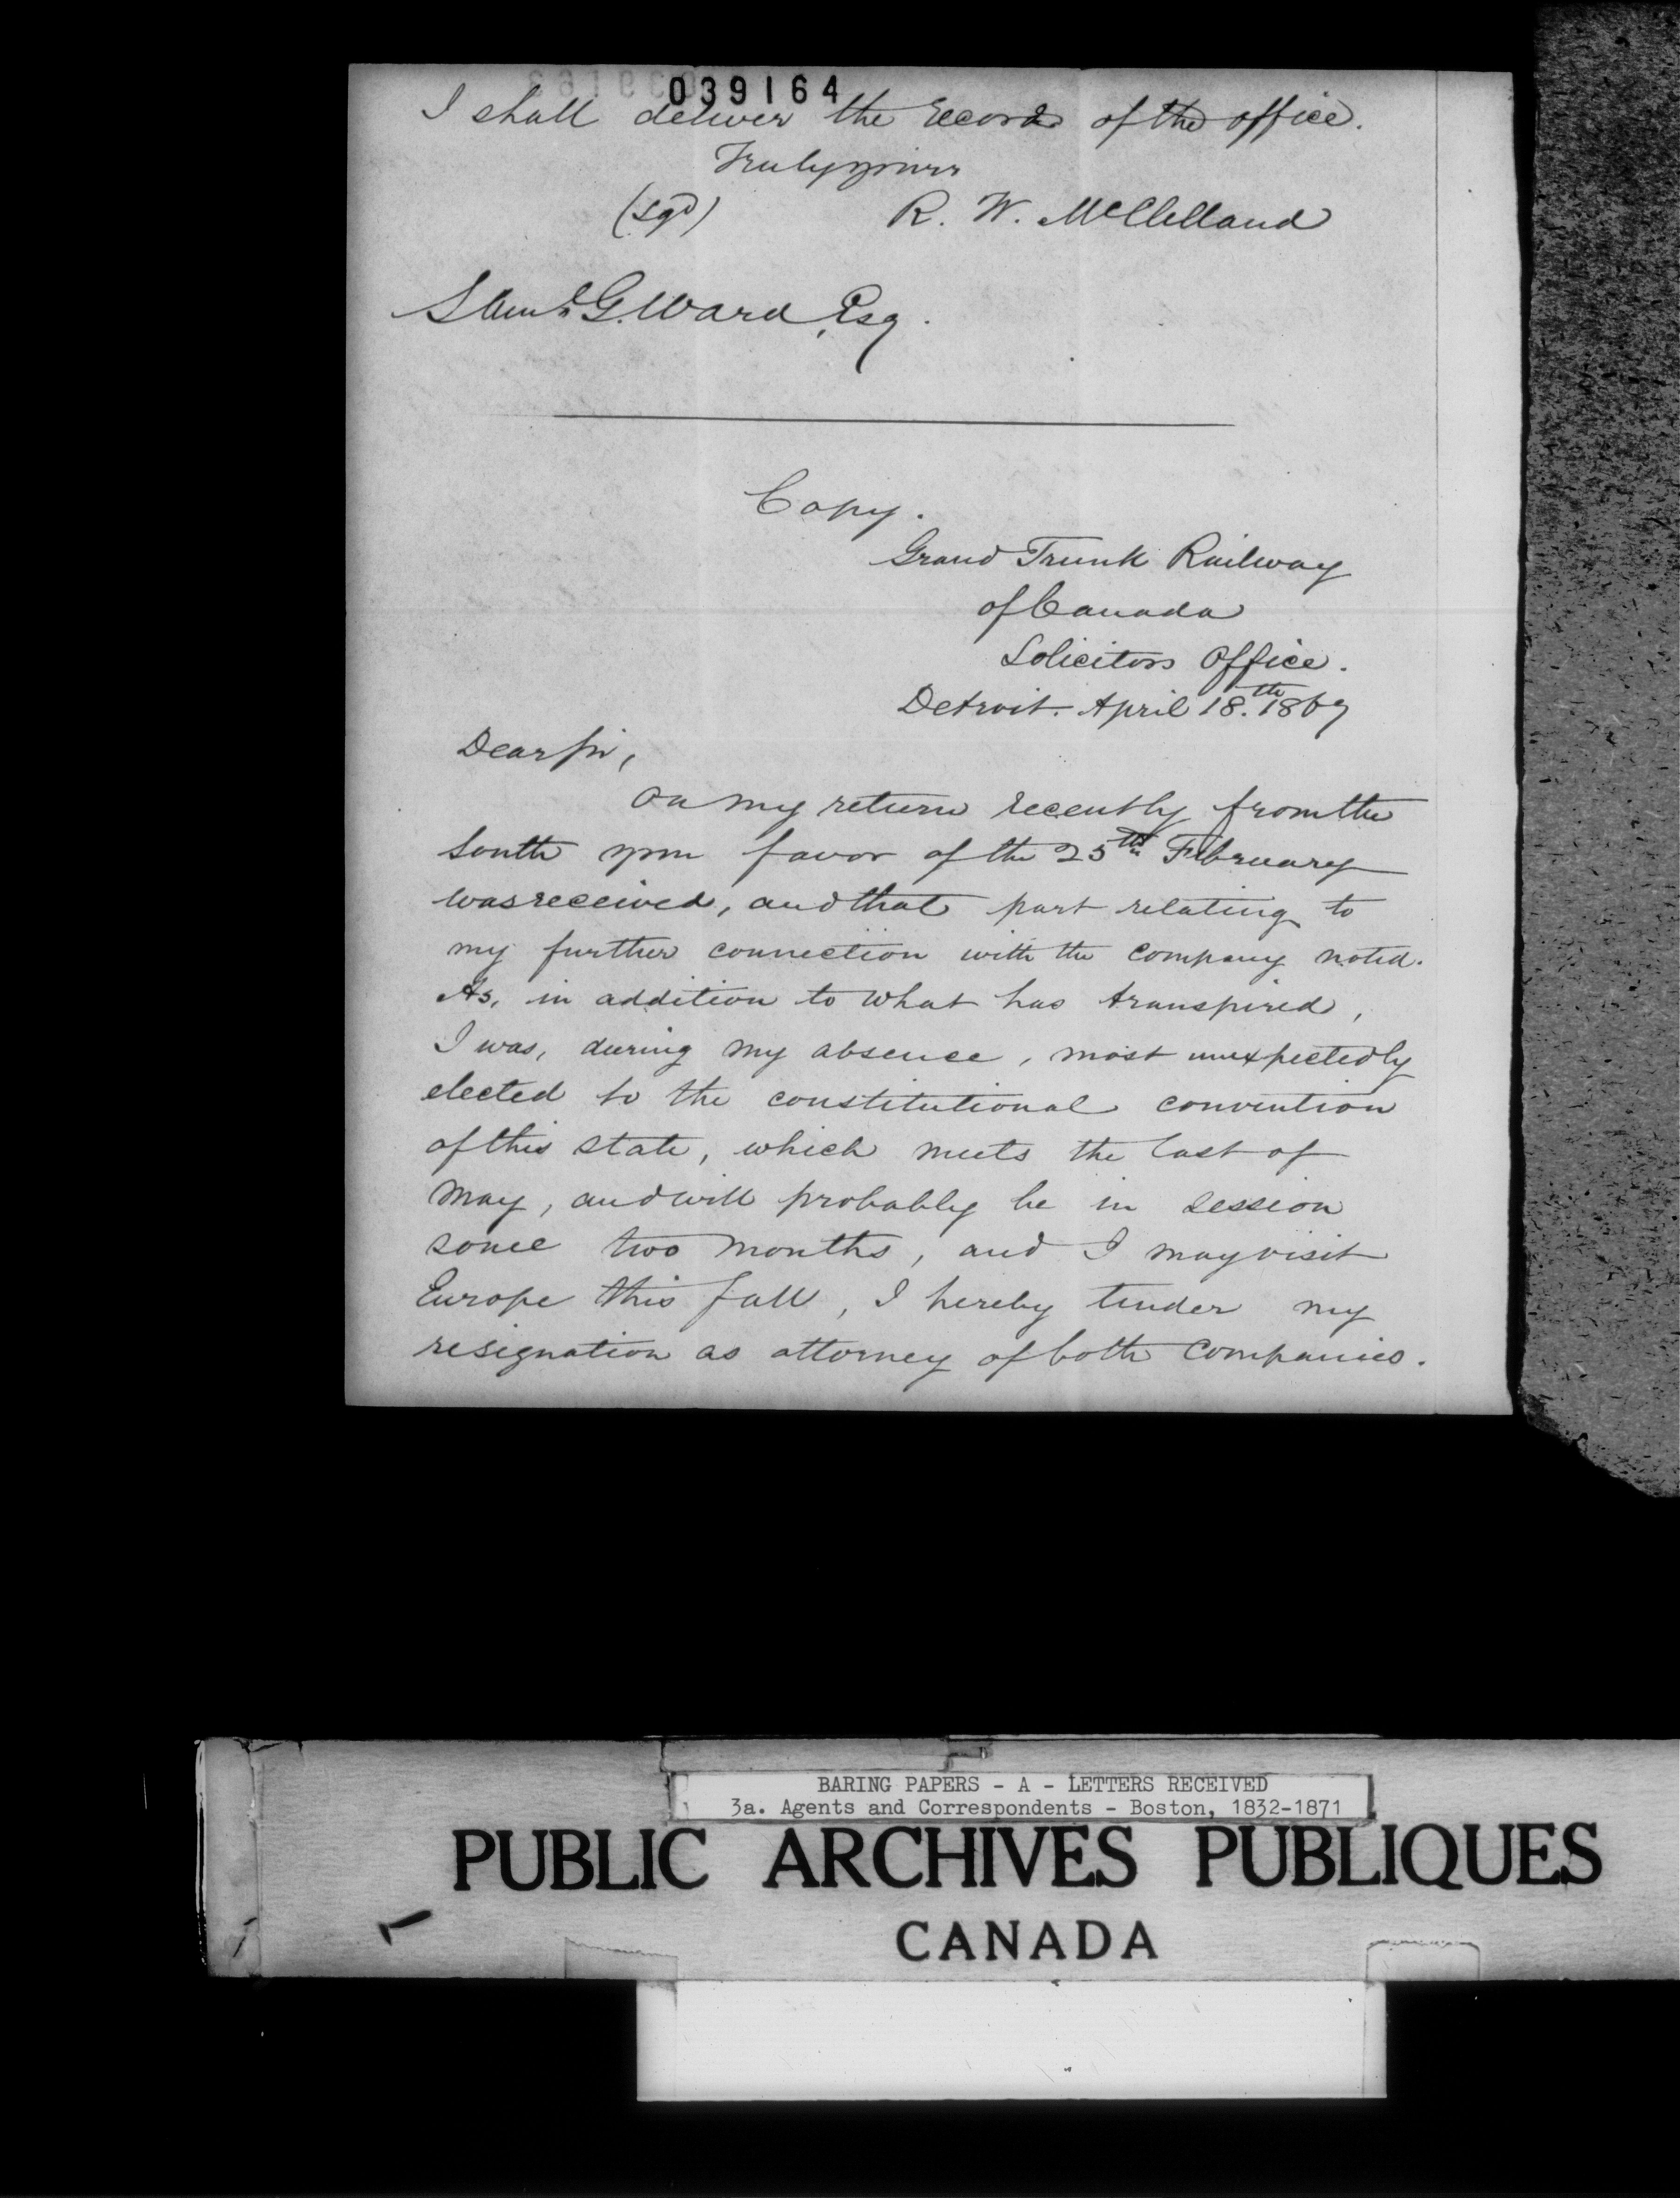 039164
I shall deliver the records of the office.
Truly yours
(sgd) R. W. McClelland
Saml G. Ward, Esq.
Copy.
Grand Trunk Railway
of Canada
Solicitors Office.
Detroit. April 18.th 1867
Dear Sir,
On my return recently from the
South your favor of the 25th February
was received, and that part relating to
my further connection with the Company noted.
As, in addition to what has transpired,
I was, during my absence, most unexpectedly
elected to the constitutional convention
of this state, which meets the last of
May, and will probably be in session
some two months, and I may visit
Europe this fall, I hereby tender my
resignation as attorney of both Companies.
BARING PAPERS - A - LETTERS RECEIVED
3a. Agents and Correspondents - Boston, 1832-1871
PUBLIC ARCHIVES PUBLIQUES
CANADA